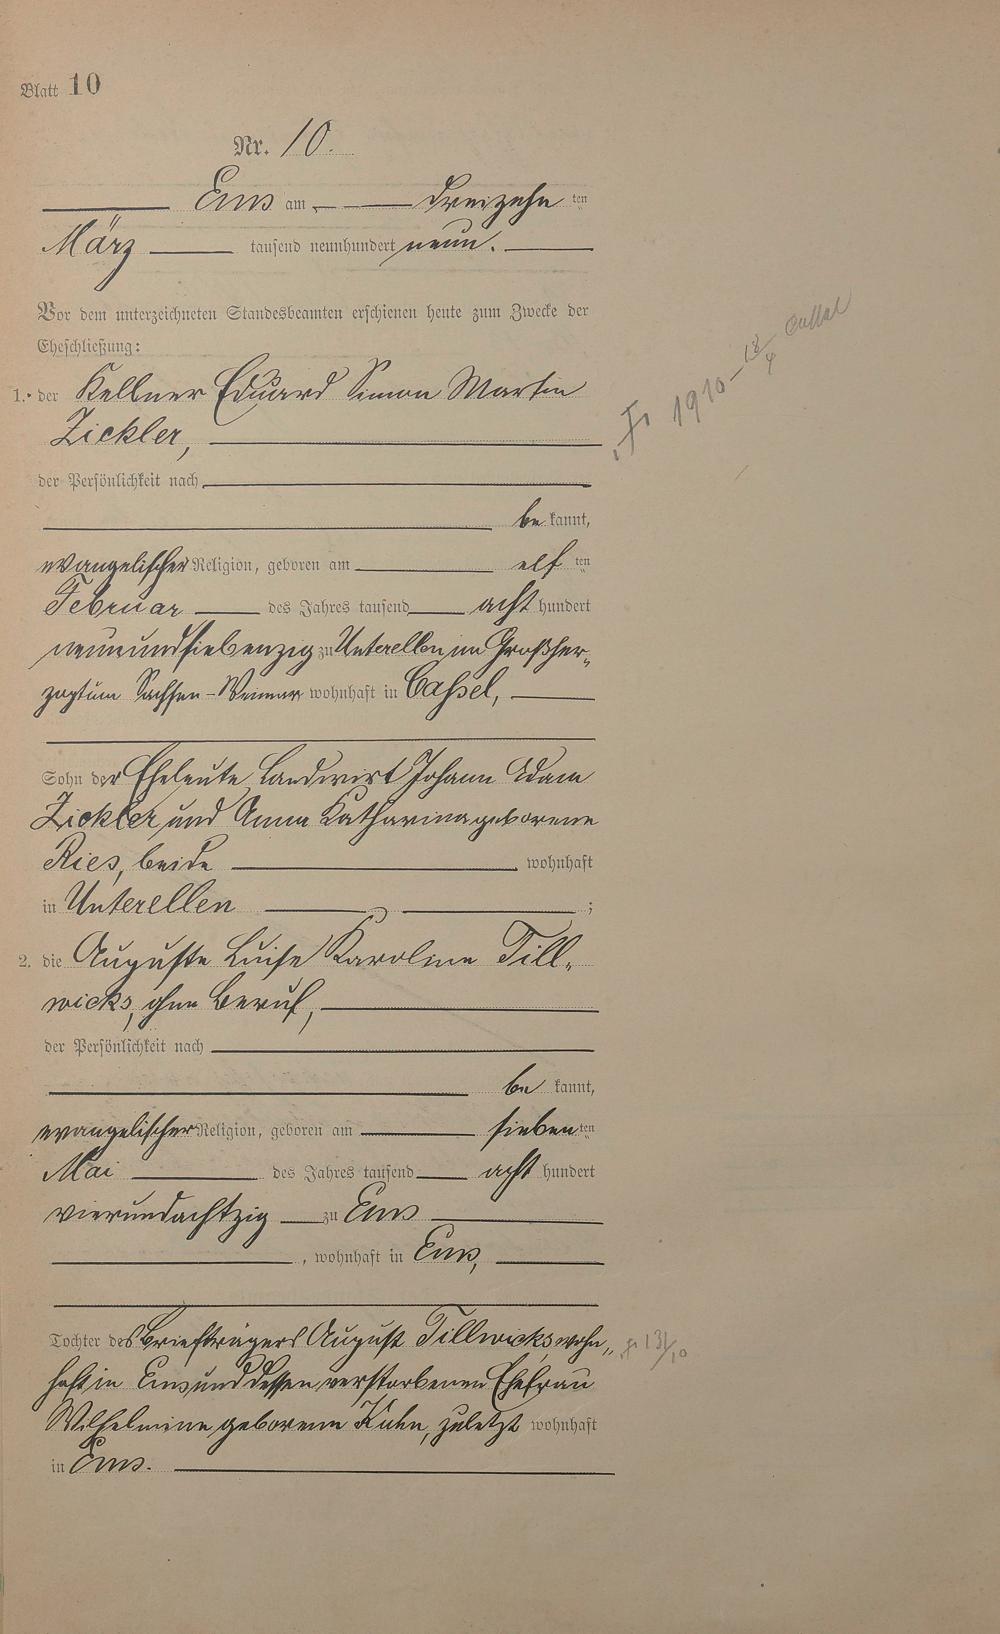 Blatt 10
Nr. 10.
Ems am dreizehn ten
März tausend neunhundert neun.
Vor dem unterzeichneten Standesbeamten erschienen heute zum Zwecke der
Eheschließung:
1. der Kellner Eduard Simon Martin
Zickler,
der Persönlichkeit nach
be kannt,
evangelischer Religion, geboren am elf ten
Februar des Jahres tausend acht hundert
neunundsiebenzig zu Unterellen im Großher-
zogtum Sachsen-Weimar wohnhaft in Cassel,
Sohn der Eheleute Landwirt Johann Adam
Zickler und Anna Katharina geborene
Ries, beide wohnhaft
in Unterellen ;
2. die Auguste Luise Karoline Till-
wicks, ohne Beruf,
der Persönlichkeit nach
be kannt,
evangelischer Religion, geboren am sieben ten
Mai des Jahres tausend acht hundert
vierundachtzig zu Ems
, wohnhaft in Ems,
Tochter des Briefträgers August Tillwicks, wohn-
haft in Ems und dessen verstorbenen Ehefrau
Wilhelmine geborene Kuhn, zuletzt wohnhaft
in Ems.
1910 - 18/4 Cassel
13/10